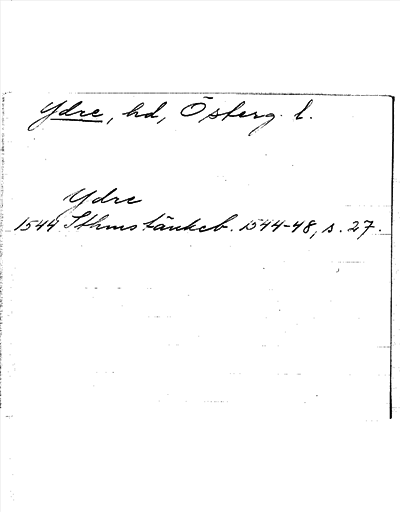 Ydre, hd, Österg. l.
Ydre
1544 Sthms tänkeb. 1544-48, s. 27.